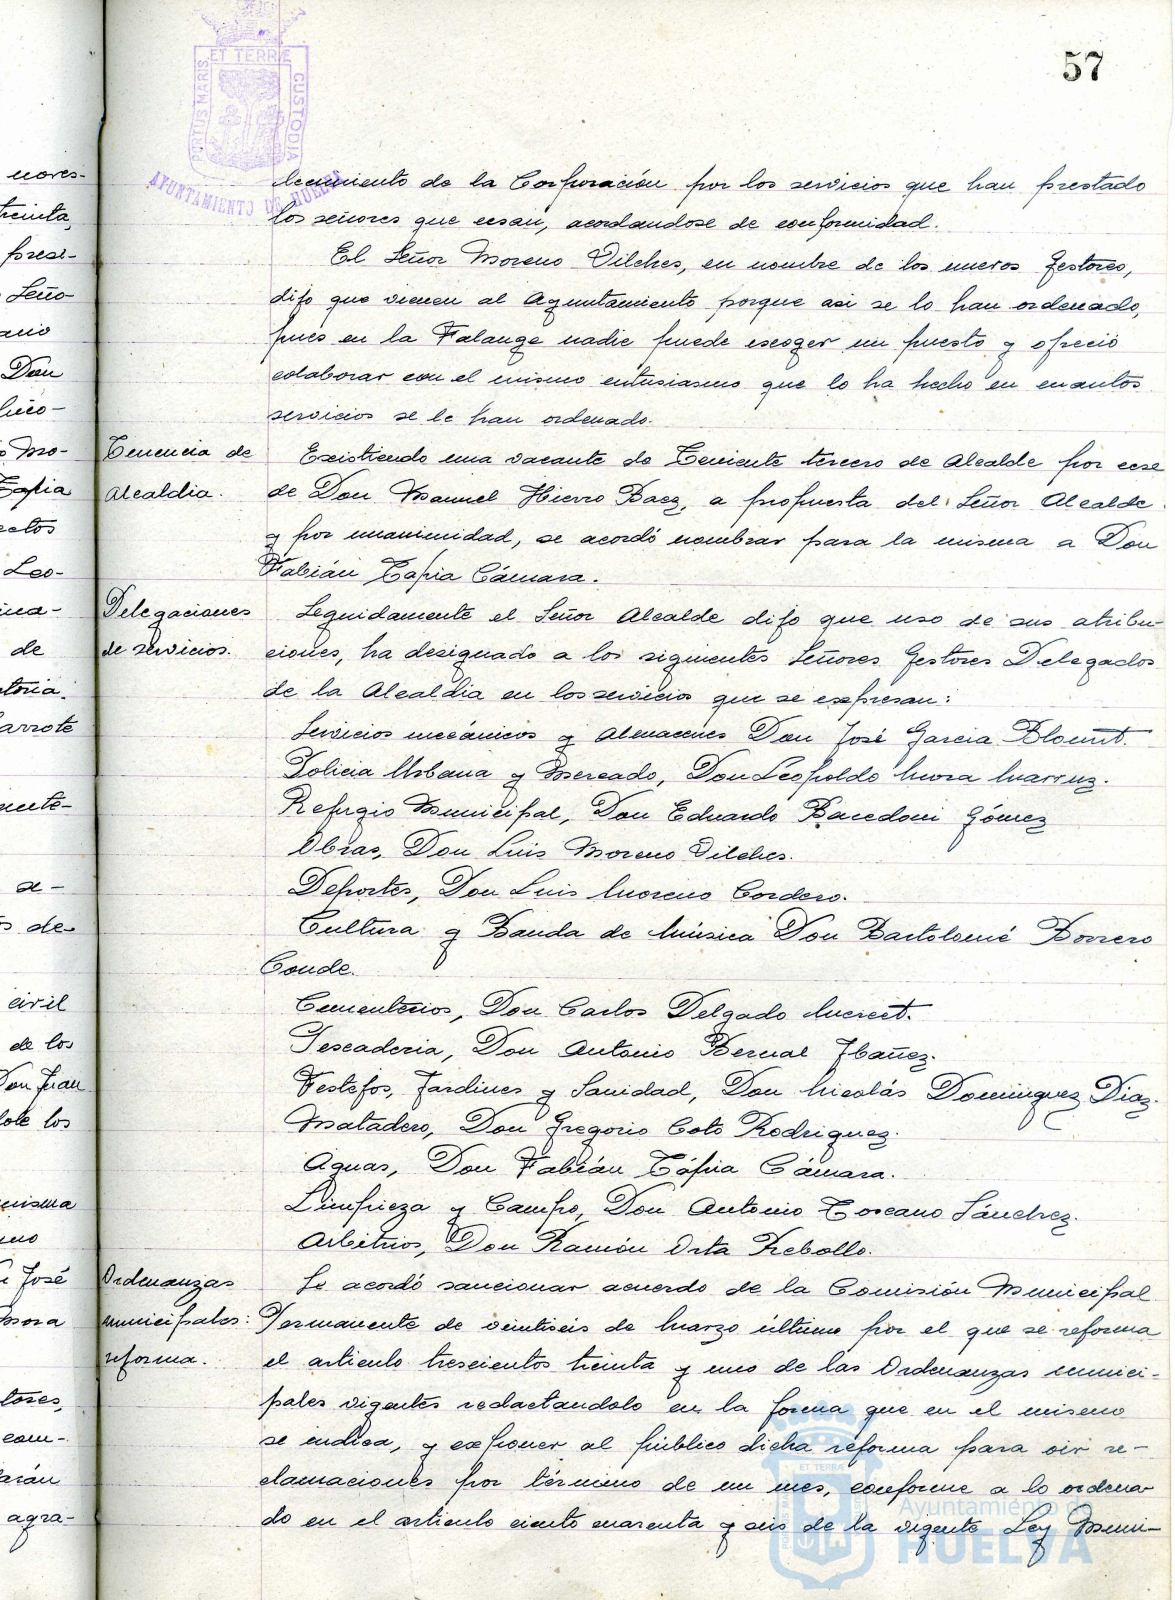 57
PORTUS MARIS ET TERRÆ CUSTODIA
AYUNTAMIENTO DE HUELVA
decimiento de la Corporación por los servicios que han prestado
los señores que cesan, acordandose de conformidad.
El Señor Moreno Vilches, en nombre de los nuevos Gestores,
dijo que vienen al Ayuntamiento porque asi se lo han ordenado,
pues en la Falange nadie puede escoger un puesto y ofreció
colaborar con el mismo entusiasmo que lo ha hecho en cuantos
servicios se le han ordenado.
Tenencia de
Alcaldia.
Existiendo una vacante de Teniente tercero de Alcalde por cese
de Don Manuel Hierro Baez, a propuesta del Señor Alcalde
y por unanimidad, se acordó nombrar para la misma a Don
Fabián Tapia Cámara.
Delegaciones
de servicios.
Seguidamente el Señor Alcalde dijo que uso de sus atribu-
ciones, ha designado a los siguientes Señores Gestores Delegados
de la Alcaldia en los servicios que se expresan:
Servicios mecánicos y Almacenes Don José Garcia
Policia Urbana y Mercado, Don Leopoldo Mora
Refugio Municipal, Don Eduardo Bacedoni Gómez
Obras, Don Luis Moreno Vilches.
Deportes, Don Luis Moreno Cordero.
Cultura y Banda de Música Don Bartolomé Borrero
Conde.
Cementerios, Don Carlos Delgado
Pescaderia, Don Antonio Bernal Ibañez.
Festejos, Jardines y Sanidad, Don Nicolás Dominguez Diaz.
Matadero, Don Gregorio Coto Rodriguez.
Aguas, Don Fabián Tápia Cámara.
Limpieza y Campo, Don Antonio Toscano Sánchez.
Arbitrios, Don Ramón Orta Rebollo.
Ordenanzas
municipales:
reforma.
Se acordó sancionar acuerdo de la Comisión Municipal
Permanente de veintiseis de Marzo último por el que se reforma
el articulo trescientos treinta y uno de las Ordenanzas munici-
pales vigentes redactandolo en la forma que en el mismo
se indica, y exponer al público dicha reforma para oir re-
clamaciones por término de un mes, conforme a lo ordena-
do en el articulo ciento cuarenta y seis de la vigente Ley Muni-
Ayuntamiento de
HUELVA